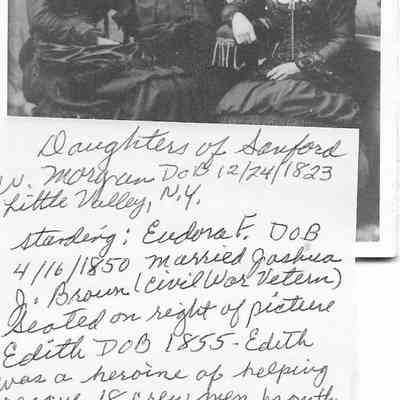 Daughters of Sanford
W. Morgan DOB 12/24/1823
Little Valley, N.Y.
standing: Eudora F. DOB
4/16/1850 married Joshua
J. Brown (Civil War Vetern)
Seated on right of picture
Edith DOB 1855 - Edith
was a heroine of helping
rescue 18 crew men